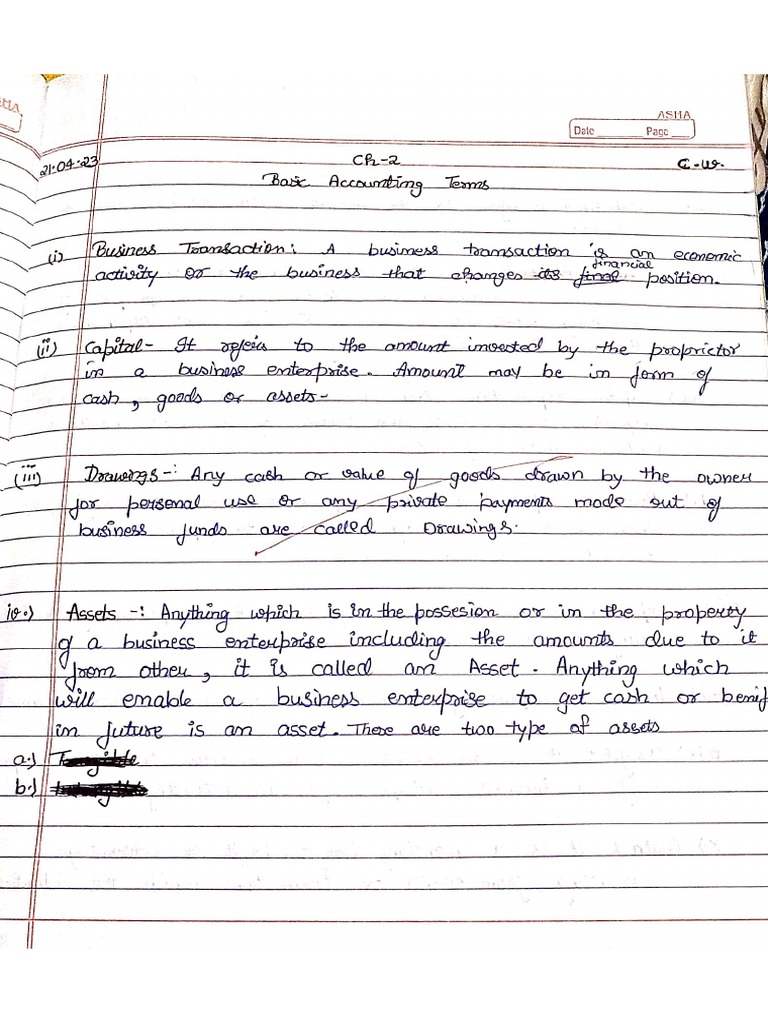 SHA
ASHA
Date Page
21.04.23 Ch-2 C.W.
Basic Accounting Terms
(i) Business Transaction: A business transaction is an economic
financial
activity or the business that changes its final position.
(ii) Capital- It refers to the amount invested by the proprietor
in a business enterprise. Amount may be in form of
cash, goods or assets-
(iii) Drawings-: Any cash or value of goods drawn by the owner
for personal use or any private payments made out of
business funds are called Drawings.
iv.) Assets -: Anything which is in the possesion or in the property
of a business enterprise including the amounts due to it
from other, it is called an Asset. Anything which
will enable a business enterprise to get cash or benif
in future is an asset. There are two type of assets
a.) Tangible
b.)